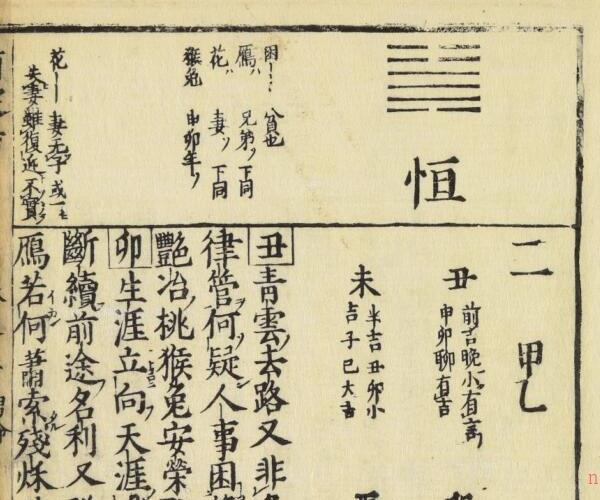 恒
困 貧也
鴈ハ 兄弟ノ下同
花ハ 妻ノ下同
猴兔 申卯年ノ
花 妻无子或
夫妻雖復近不實
二 甲乙
丑 前吉晚小有言
申卯聊有吉
未 半吉丑卯小
吉子巳大吉
丑青雲去路又非
律管何疑人事困
艷冶桃猴兔安榮
卯生涯立向天涯
斷續前途名利又
鴈若何蕭索殘秌